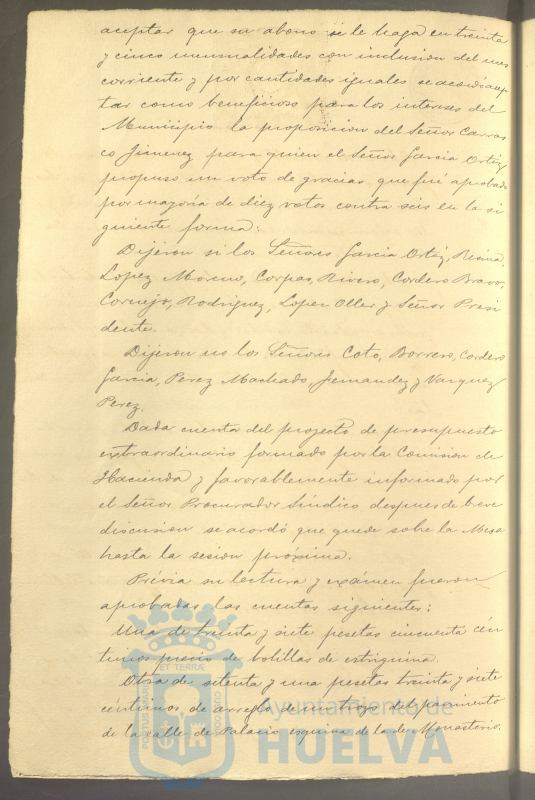 aceptar que su abono se le haga en treinta
y cinco mensualidades con inclusion del mes
corriente y por cantidades iguales se acordó acep
tar como beneficioso para los intereses del
Municipio la proposicion del Señor Carras
co Jimenez para quien el Señor Garcia Ortiz
propuso un voto de gracias que fué aprobado
por mayoría de diez votos contra seis en la si
guiente forma:
Dijeron si los Señores Garcia Ortiz, Reina,
Lopez Moreno, Corpas, Rivero, Cordero Bravo,
Cornejo, Rodriguez, Lopez Oller y Señor Presi
dente.
Dijeron no los Señores Coto, Borrero, Cordero
Garcia, Perez Machado, Fernandez y Vazquez
Perez.
Dada cuenta del proyecto de presupuesto
extraordinario formado por la Comision de
Hacienda y favorablemente informado por
el Señor Procurador Síndico despues de breve
discusion se acordó que quede sobre la Mesa
hasta la sesion próxima.
Prévia su lectura y exámen fueron
aprobadas las cuentas siguientes:
Una de treinta y siete pesetas cincuenta cén
timos precio de bolillas de estrignina.
Otra de setenta y una pesetas treinta y siete
céntimos de arreglo de un trozo del pavimento
de la calle de Palacio esquina de la de Monasterio.
PORTUS MARIS
ET TERRÆ
CUSTODIA
Ayuntamiento de
HUELVA